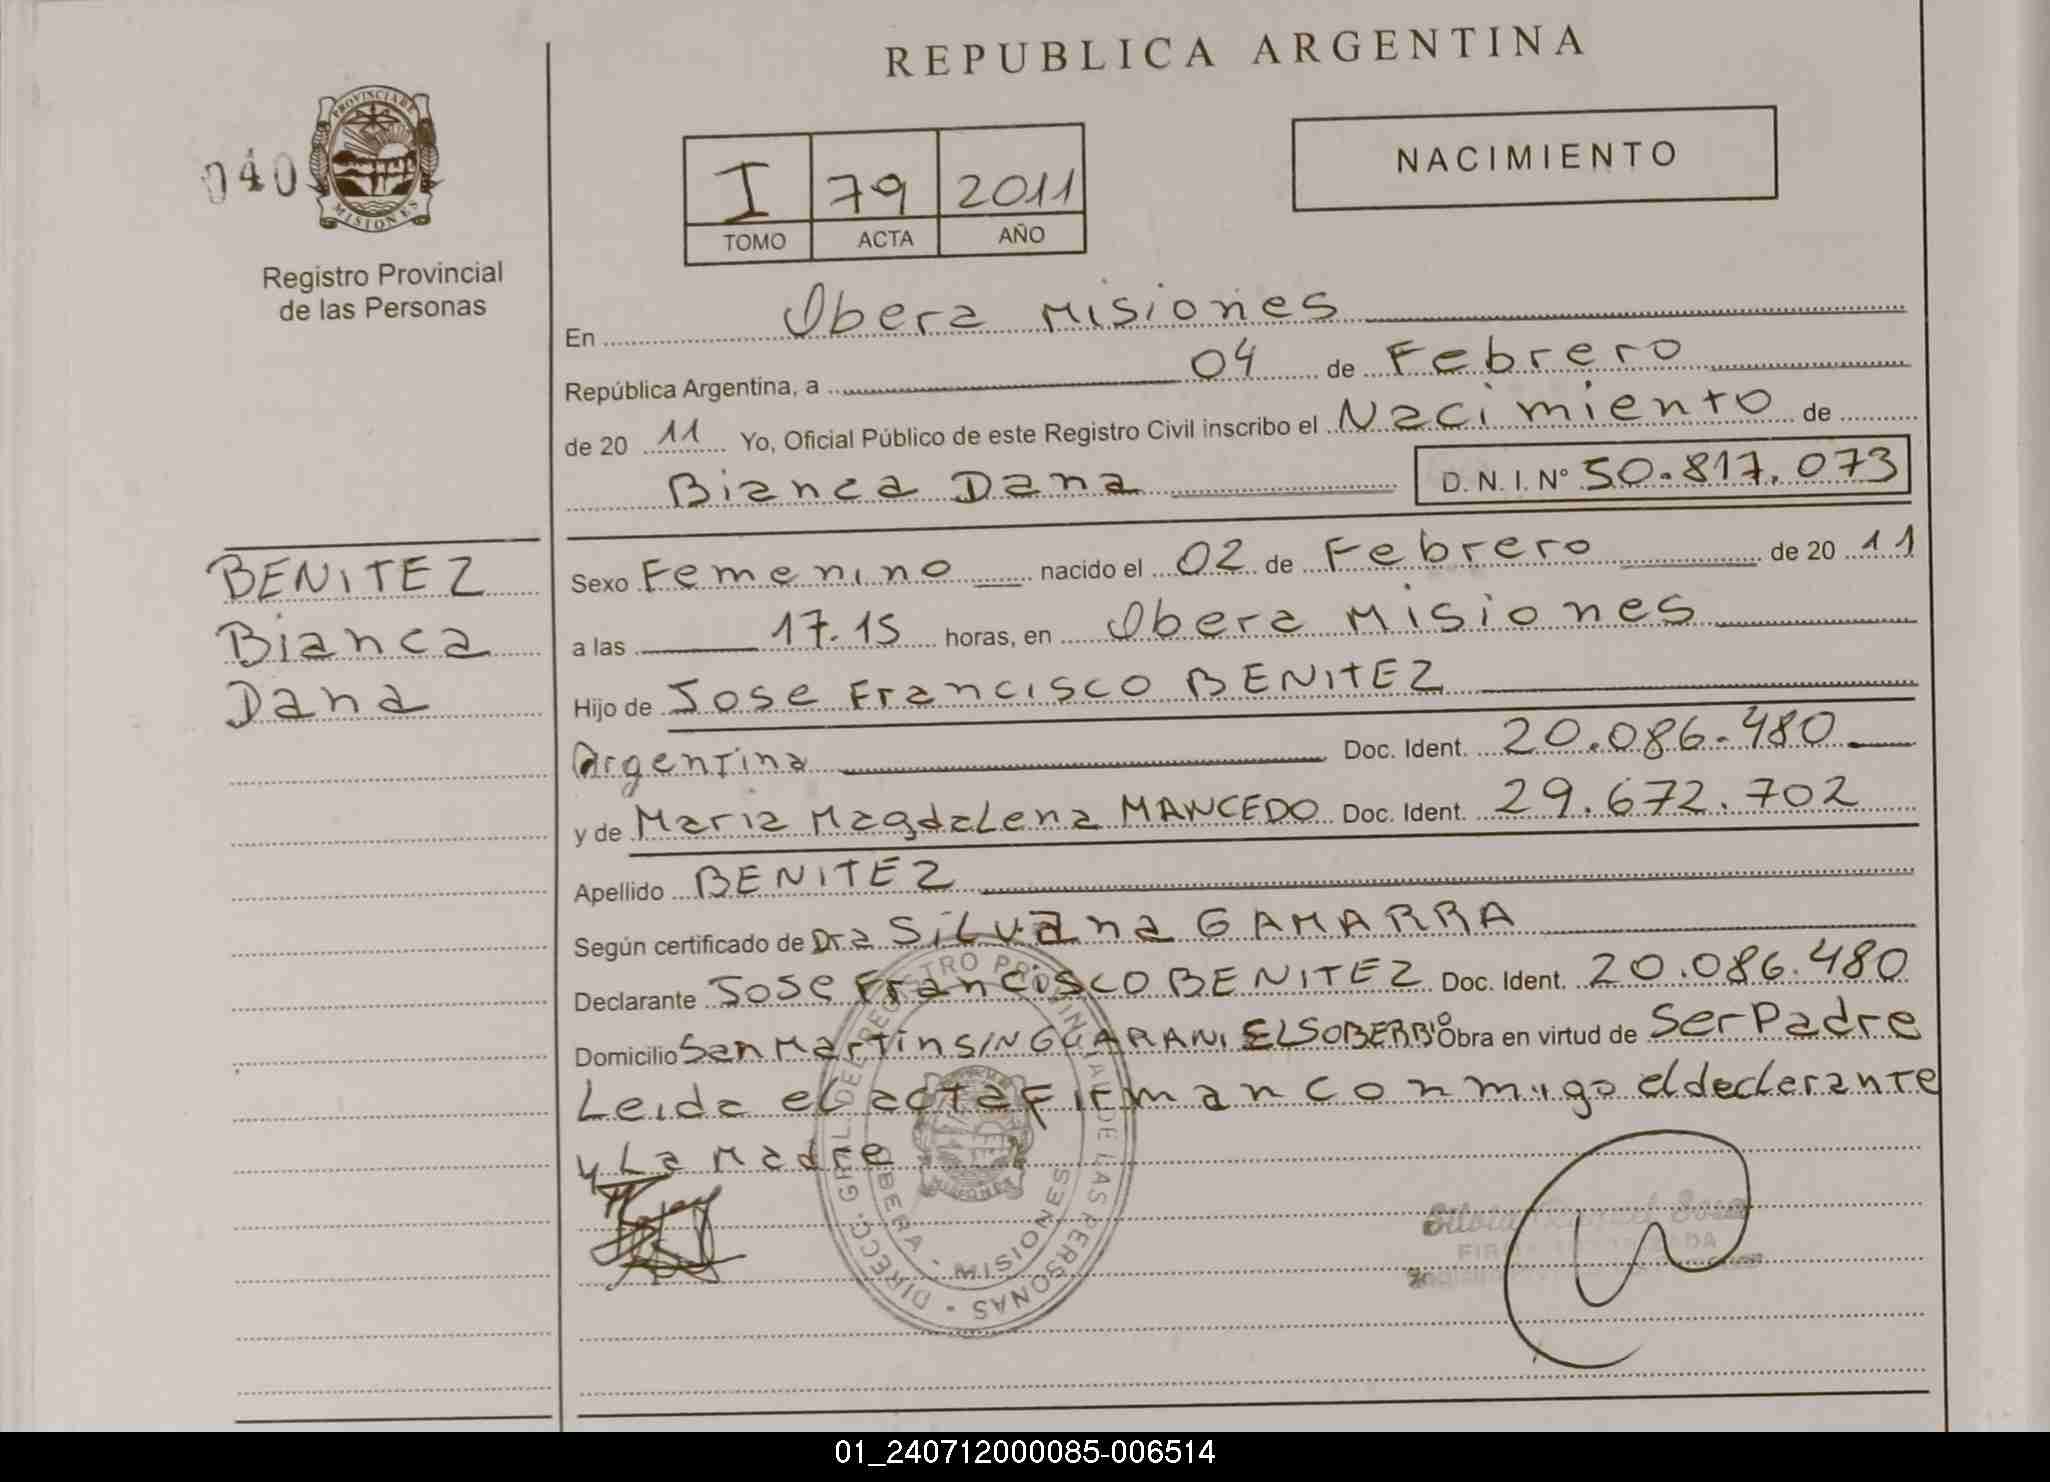 REPUBLICA ARGENTINA
040
PROVINCIA DE
MISIONES
Registro Provincial
de las Personas
I 79 2011
TOMO ACTA AÑO
NACIMIENTO
En Obera Misiones
República Argentina, a 04 de Febrero
de 20 11 Yo, Oficial Público de este Registro Civil inscribo el Nacimiento de
Bianca Dana D. N. I. Nº 50.817.073
BENITEZ
Bianca
Dana
Sexo Femenino nacido el 02 de Febrero de 20 11
a las 17.15 horas, en Obera Misiones
Hijo de Jose Francisco BENITEZ
Argentina Doc. Ident. 20.086.480
y de Maria Magdalena MANCEDO Doc. Ident. 29.672.702
Apellido BENITEZ
Según certificado de Dra Silvana GAMARRA
Declarante Jose Francisco BENITEZ Doc. Ident. 20.086.480
Domicilio San Martin S/N GUARANI EL SOBERBIO Obra en virtud de Ser Padre
Leida el acta firman conmigo el declarante
y La Madre
DIRECC. GRAL. DEL REGISTRO PROVINCIAL DE LAS PERSONAS
OBERA - MISIONES
01_240712000085-006514